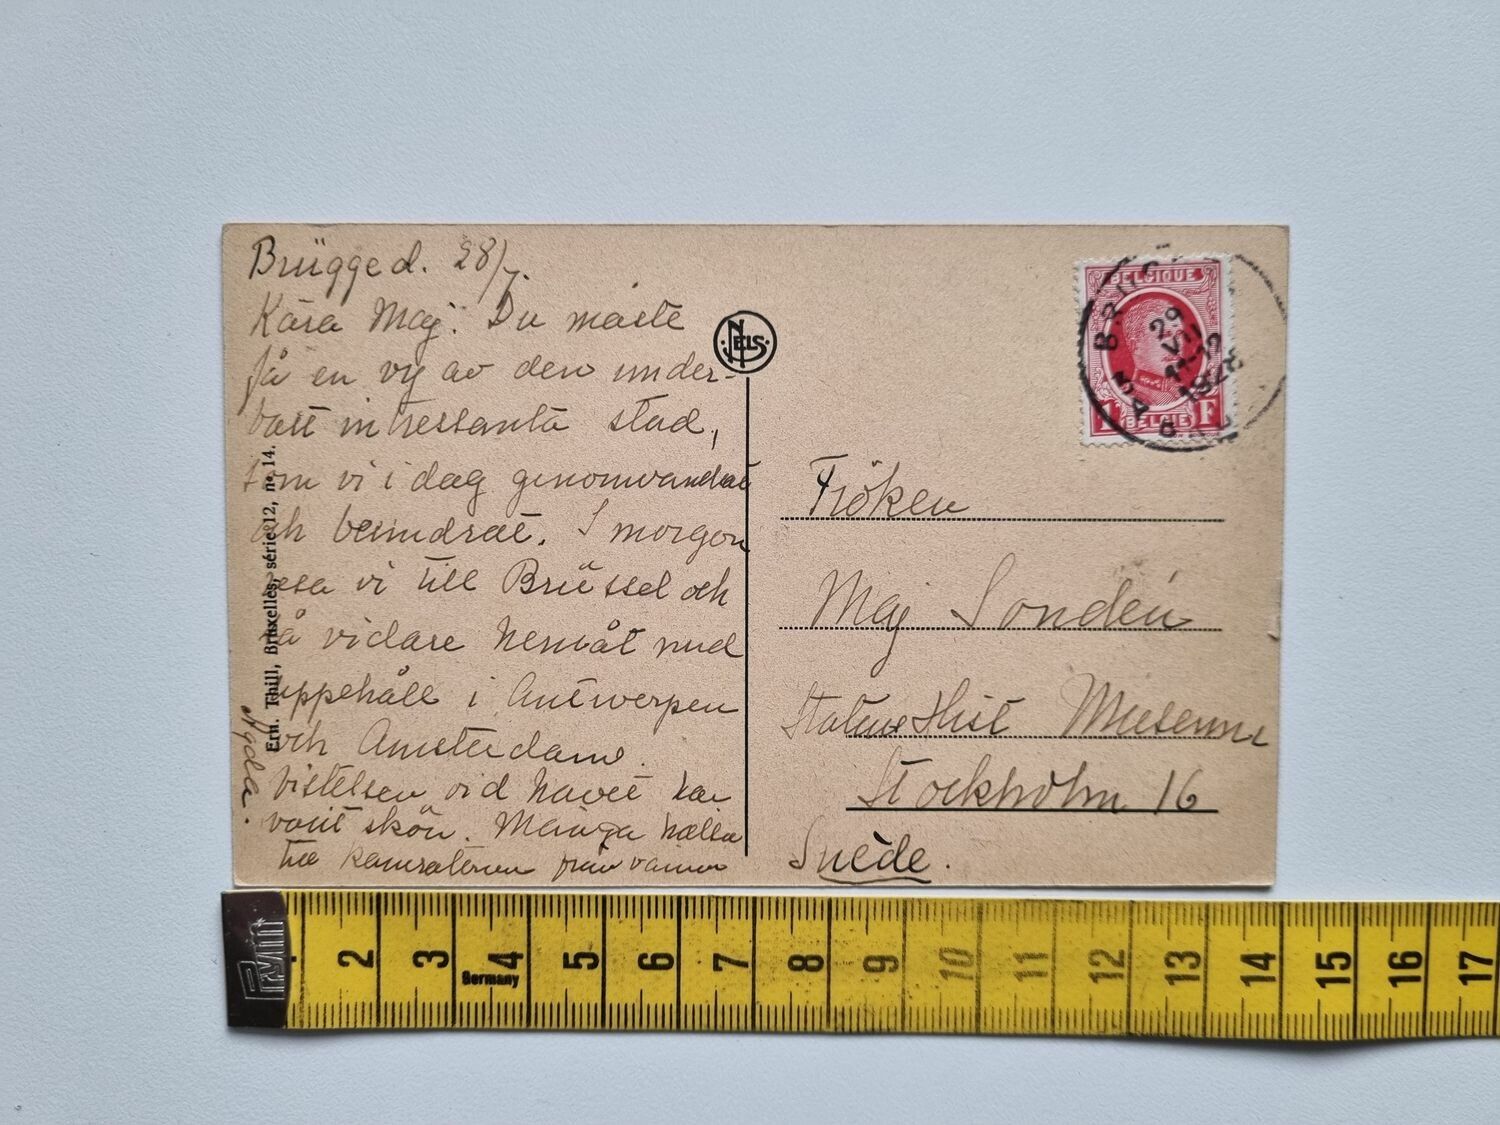 Brügge d. 28/7.
Kära Maj! Du måste
få en vy av den under-
bart intressanta stad,
som vi i dag genomvandrat
och beundrat. I morgon
resa vi till Brüssel och
så vidare hemåt med
uppehåll i Antwerpen
och Amsterdam.
Vistelsen vid havet har
varit skön. Många hälsn
till kamraterna från
Ern. Thill, Bruxelles, série 12, no 14.
NELS
BELGIQUE
1 F
BELGIE
BRUGGE
29
VII
11-12
1928
Fröken
Maj Sondén
Statens Hist Museum
Stockholm 16
Suède.
PYM
Germany
2 3 4 5 6 7 8 9 10 11 12 13 14 15 16 17